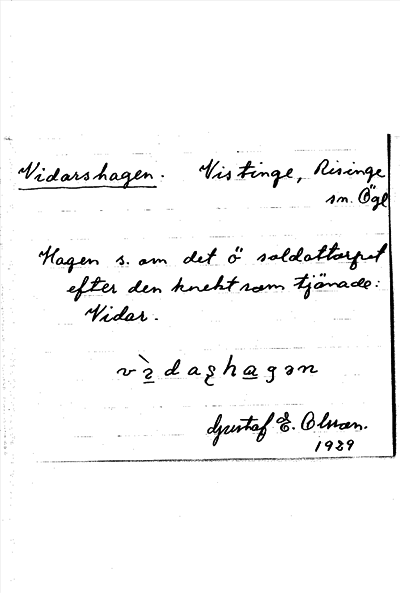 Vidarshagen. Vistinge, Risinge
sn. Ögl
Hagen s. om det ö soldattorpet
efter den knekt som tjänade:
Vidar.
Gustaf E. Olsson.
1929